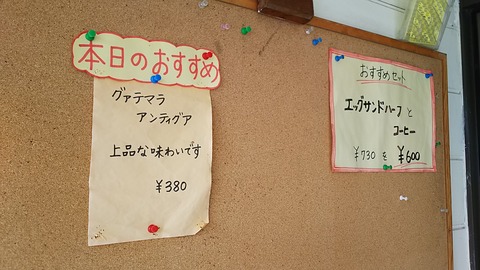 本日のおすすめ
グァテマラ
アンティグア
上品な味わいです
¥380
おすすめセット
エッグサンドハーフ と
コーヒー
¥730 を ¥600